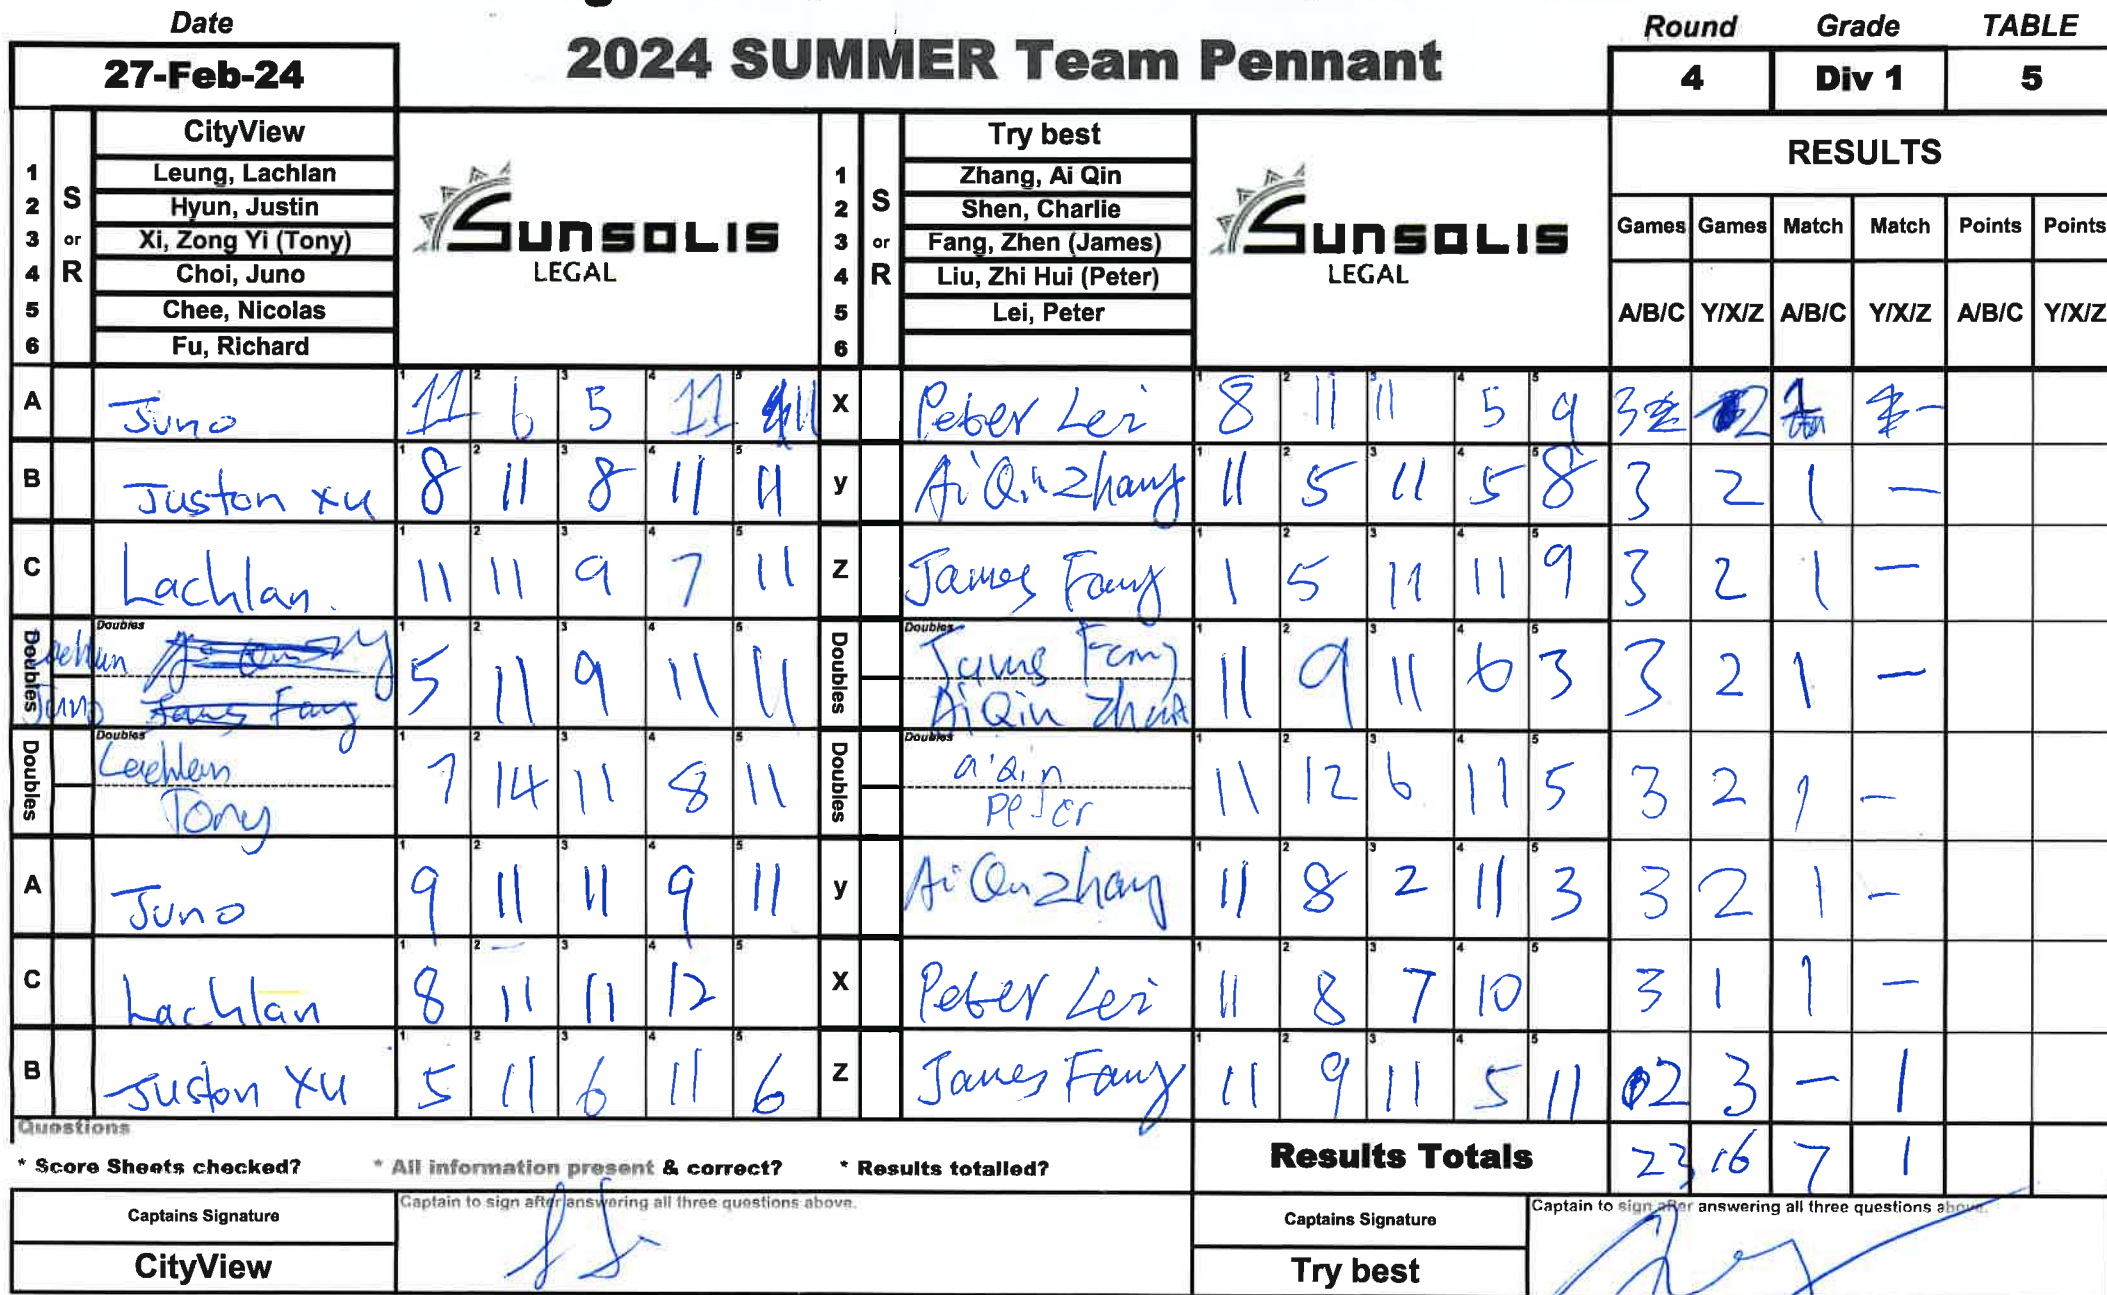 Date
27-Feb-24
2024 SUMMER Team Pennant
Round Grade TABLE
4 Div 1 5
CityView
1 Leung, Lachlan
2 Hyun, Justin
3 Xi, Zong Yi (Tony)
4 Choi, Juno
5 Chee, Nicolas
6 Fu, Richard
S or R
SUNSOLIS
LEGAL
Try best
1 Zhang, Ai Qin
2 Shen, Charlie
3 Fang, Zhen (James)
4 Liu, Zhi Hui (Peter)
5 Lei, Peter
6
S or R
SUNSOLIS
LEGAL
RESULTS
Games Games Match Match Points Points
A/B/C Y/X/Z A/B/C Y/X/Z A/B/C Y/X/Z
A Juno 11 6 5 11 11 X Peter Lei 8 11 11 5 9 3 2 1 -
B Juston Xu 8 11 8 11 11 y Ai Qin Zhang 11 5 11 5 8 3 2 1 -
C Lachlan. 11 11 9 7 11 Z James Fang 1 5 11 11 9 3 2 1 -
Doubles Doubles Juno 5 11 9 11 11 Doubles Doubles James Fang AiQin 11 9 11 6 3 3 2 1 -
Doubles Doubles Lachlan Tony 7 14 11 8 11 Doubles Doubles aiqin peter 11 12 6 11 5 3 2 1 -
A Juno 9 11 11 9 11 y Ai Qin Zhang 11 8 2 11 3 3 2 1 -
C Lachlan 8 11 11 12 X Peter Lei 11 8 7 10 3 1 1 -
B Juston Xu 5 11 6 11 6 Z James Fang 11 9 11 5 11 2 3 - 1
Questions
* Score Sheets checked? * All information present & correct? * Results totalled?
Results Totals 23 16 7 1
Captains Signature
Captain to sign after answering all three questions above.
Captains Signature
Captain to sign after answering all three questions above.
CityView
Try best